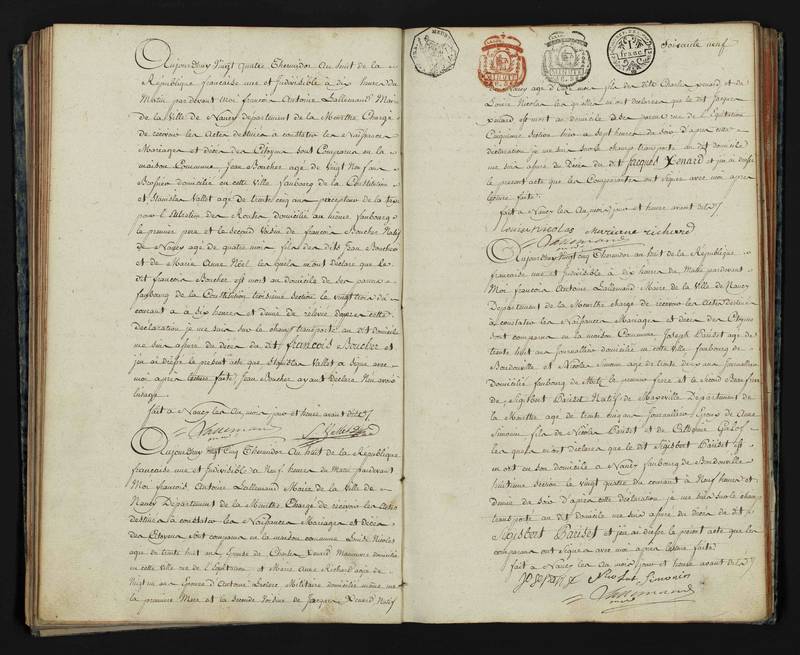 Aujourdhuy Vingt quatre Thermidor An huit de la
République françaisse une et Indivisible à dix heures du
Matin pardevant Moi françois Antoine Lallemand Maire
de la Ville de Nancy Département de la Meurthe Chargé
de recevoir les Actes destinés à constater les Naissances
Mariages et décès des Citoyens sont Comparus en la
maison Commune Jean Boucher agé de Vingt
domicilié en cette Ville faubourg de la Constitution
et Stanislas Vallet agé de trente cinq ans percepteur de la taxe
pour l'Entretien des Routes domicilié au même faubourg
le premier pere et le second Voisin de françois Boucher Natif
de Nancy agé de quatre mois fils des dits Jean Boucher
et de Marie Anne Noël les quels m'ont déclaré que le
dit françois Boucher est mort au domicile de ses parens
faubourg de la Constitution troisieme section le vingt trois du
courant a six heures et demie de relevée d'apres cette
Déclaration je me suis sur le champ transporté au dit domicile
me suis assuré du décès du dit françois Boucher et
j'en ai dressé le présent acte que Stanislas Vallet a signé avec
moi après lecture faite, Jean Boucher ayant déclaré n'en avoir
l'usage.
fait a Nancy les An, mois, jour et heure avant dits
Lallemand
Aujourdhuy Vingt Cinq Thermidor An huit de la République
françaisse une et Indivisible à Neuf heures du Matin pardevant
Moi françois Antoine Lallemand Maire de la Ville de
Nancy Département de la Meurthe Chargé de recevoir les Actes
destinés à constater les Naissances Mariages et décès
des Citoyens sont comparus en la maison commune Louise Nicolas
agée de trente huit ans Epouse de Charles Xonard Manœuvre domicilié
en cette ville rue de l'Equitation et Marie Anne Richard agée de
Vingt un ans Epouse d'Antoine Militaire domiciliée même rue
la premiere Mere et la seconde Voisine de Jacques Xonard Natif
franc
Soixante neuf
de Nancy agé de mois fils des dits Charles Xonard et de
Louise Nicolas les quelles m'ont déclarées que le dit Jacques
Xonard est mort au domicile de ses parens rue de l'Equitation
Cinquieme Section hier à sept heures du soir d'apres cette
déclaration je me suis sur le champ transporté au dit domicile
me suis assuré du Décès du dit Jacques Xonard et j'en ai dressé
le présent acte que les Comparantes ont signées avec moi après
lecture faite.
fait à Nancy les An, mois, jour et heure avant dits
Louise Nicolas Mariane richard
Lallemand
Aujourdhuy Vingt Cinq Thermidor an huit de la République
françaisse une et Indivisible à dix heures du Matin pardevant
Moi françois Antoine Lallemand Maire de la Ville de Nancy
Département de la Meurthe chargé de recevoir les Actes destinés
à constater les Naissances Mariages et décès des Citoyens
sont comparus en la maison Commune Joseph Pariset agé de
trente huit ans Journallier domicilié en cette Ville faubourg de
Boudonville et Nicolas Simonin agé de trente ans Journallier
Domicilié faubourg de Metz le premier frere et le second Beaufrere
de Sigisbert Pariset Natif de Maxeville Département de
la Meurthe agé de trente ans Journallier Epoux de Anne
Simonin fils de Nicolas Pariset et de Catherine
les quels m'ont déclarés que le dit Sigisbert Pariset est
mort en son domicile à Nancy faubourg de Boudonville
huitieme section le vingt quatre du courant à Neuf heures et
Demie du soir d'après cette déclaration je me suis sur le champ
transporté au dit domicile me suis assuré du décès du dit
Sigisbert Pariset et j'en ai dressé le présent acte que les
comparans ont signés avec moi après lecture faite
fait a Nancy les An, mois, jour et heure avant dits
Nicolas Simonin
Lallemand